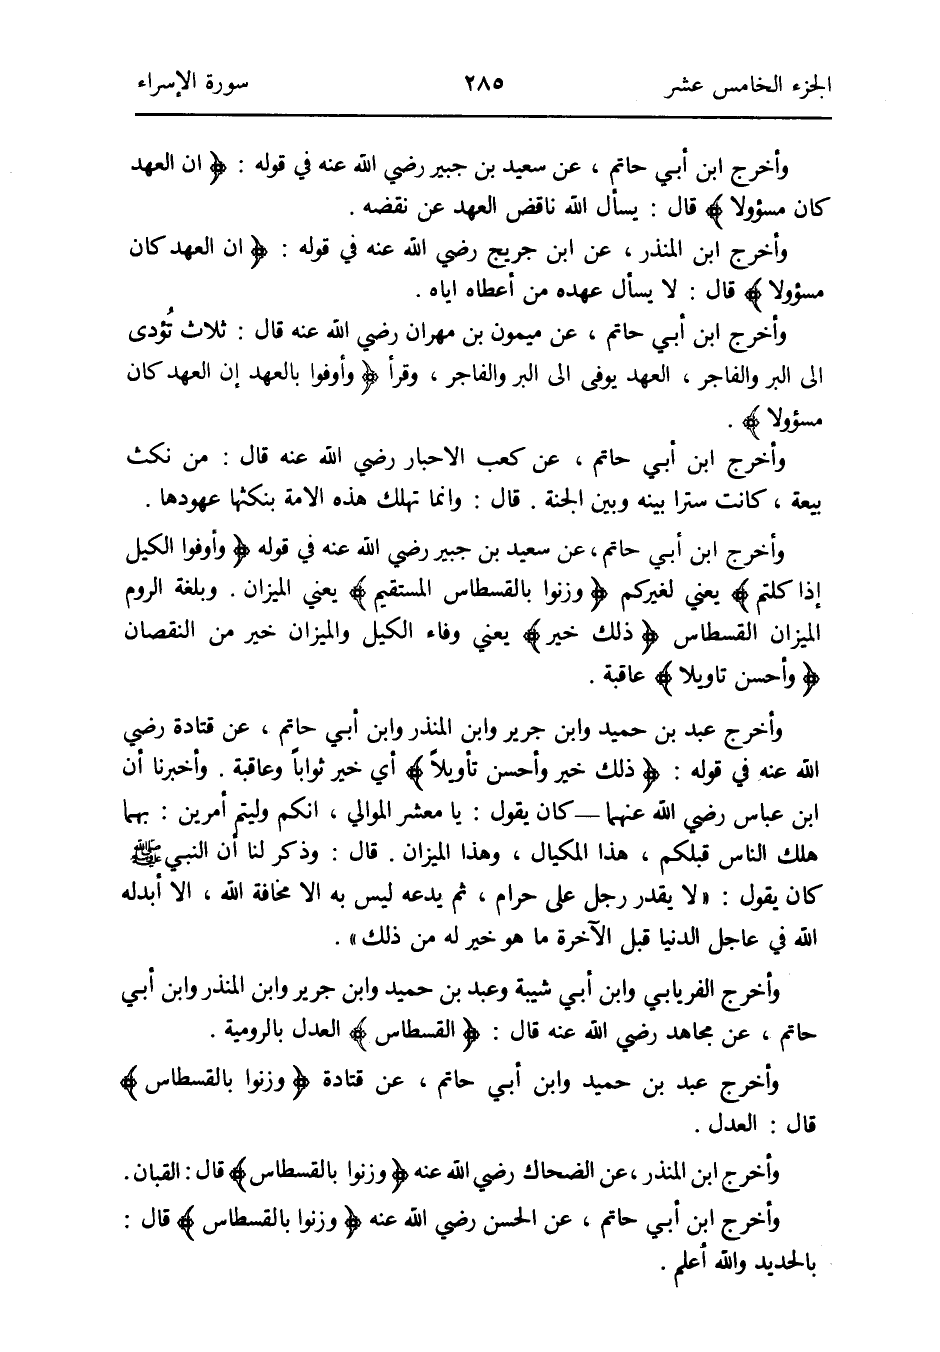 الجزء الخامس عشر ٢٨٥ سورة الإسراء
وأخرج ابن أبي حاتم ، عن سعيد بن جبير رضي الله عنه في قوله : ﴿ ان العهد
كان مسؤولا ﴾ قال : يسأل الله ناقض العهد عن نقضه .
وأخرج ابن المنذر ، عن ابن جريج رضي الله عنه في قوله : ﴿ ان العهد كان
مسؤولا ﴾ قال : لا يسأل عهده من أعطاه اياه .
وأخرج ابن أبي حاتم ، عن ميمون بن مهران رضي الله عنه قال : ثلاث تُؤدى
الى البر والفاجر ، العهد يوفى الى البر والفاجر ، وقرأ ﴿ وأوفوا بالعهد إن العهد كان
مسؤولا ﴾ .
وأخرج ابن أبي حاتم ، عن كعب الاحبار رضي الله عنه قال : من نكث
بيعة ، كانت سترا بينه وبين الجنة . قال : وانما تهلك هذه الامة بنكثها عهودها .
وأخرج ابن أبي حاتم، عن سعيد بن جبير رضي الله عنه في قوله ﴿ وأوفوا الكيل
إذا كلتم ﴾ يعني لغيركم ﴿ وزنوا بالقسطاس المستقيم ﴾ يعني الميزان . وبلغة الروم
الميزان القسطاس ﴿ ذلك خير ﴾ يعني وفاء الكيل والميزان خير من النقصان
﴿ وأحسن تاويلا ﴾ عاقبة .
وأخرج عبد بن حميد وابن جرير وابن المنذر وابن أبي حاتم ، عن قتادة رضي
الله عنه في قوله : ﴿ ذلك خير وأحسن تأويلاً ﴾ أي خير ثواباً وعاقبة . وأخبرنا أن
ابن عباس رضي الله عنهما — كان يقول : يا معشر الموالي ، انكم وليتم أمرين : بهما
هلك الناس قبلكم ، هذا المكيال ، وهذا الميزان . قال : وذكر لنا أن النبي ﷺ
كان يقول : «لا يقدر رجل على حرام ، ثم يدعه ليس به الا مخافة الله ، الا أبدله
الله في عاجل الدنيا قبل الآخرة ما هو خير له من ذلك» .
وأخرج الفريابي وابن أبي شيبة وعبد بن حميد وابن جرير وابن المنذر وابن أبي
حاتم ، عن مجاهد رضي الله عنه قال : ﴿ القسطاس ﴾ العدل بالرومية .
وأخرج عبد بن حميد وابن أبي حاتم ، عن قتادة ﴿ وزنوا بالقسطاس ﴾
قال : العدل .
وأخرج ابن المنذر ،عن الضحاك رضي الله عنه ﴿ وزنوا بالقسطاس ﴾ قال : القبان .
وأخرج ابن أبي حاتم ، عن الحسن رضي الله عنه ﴿ وزنوا بالقسطاس ﴾ قال :
بالحديد والله أعلم .